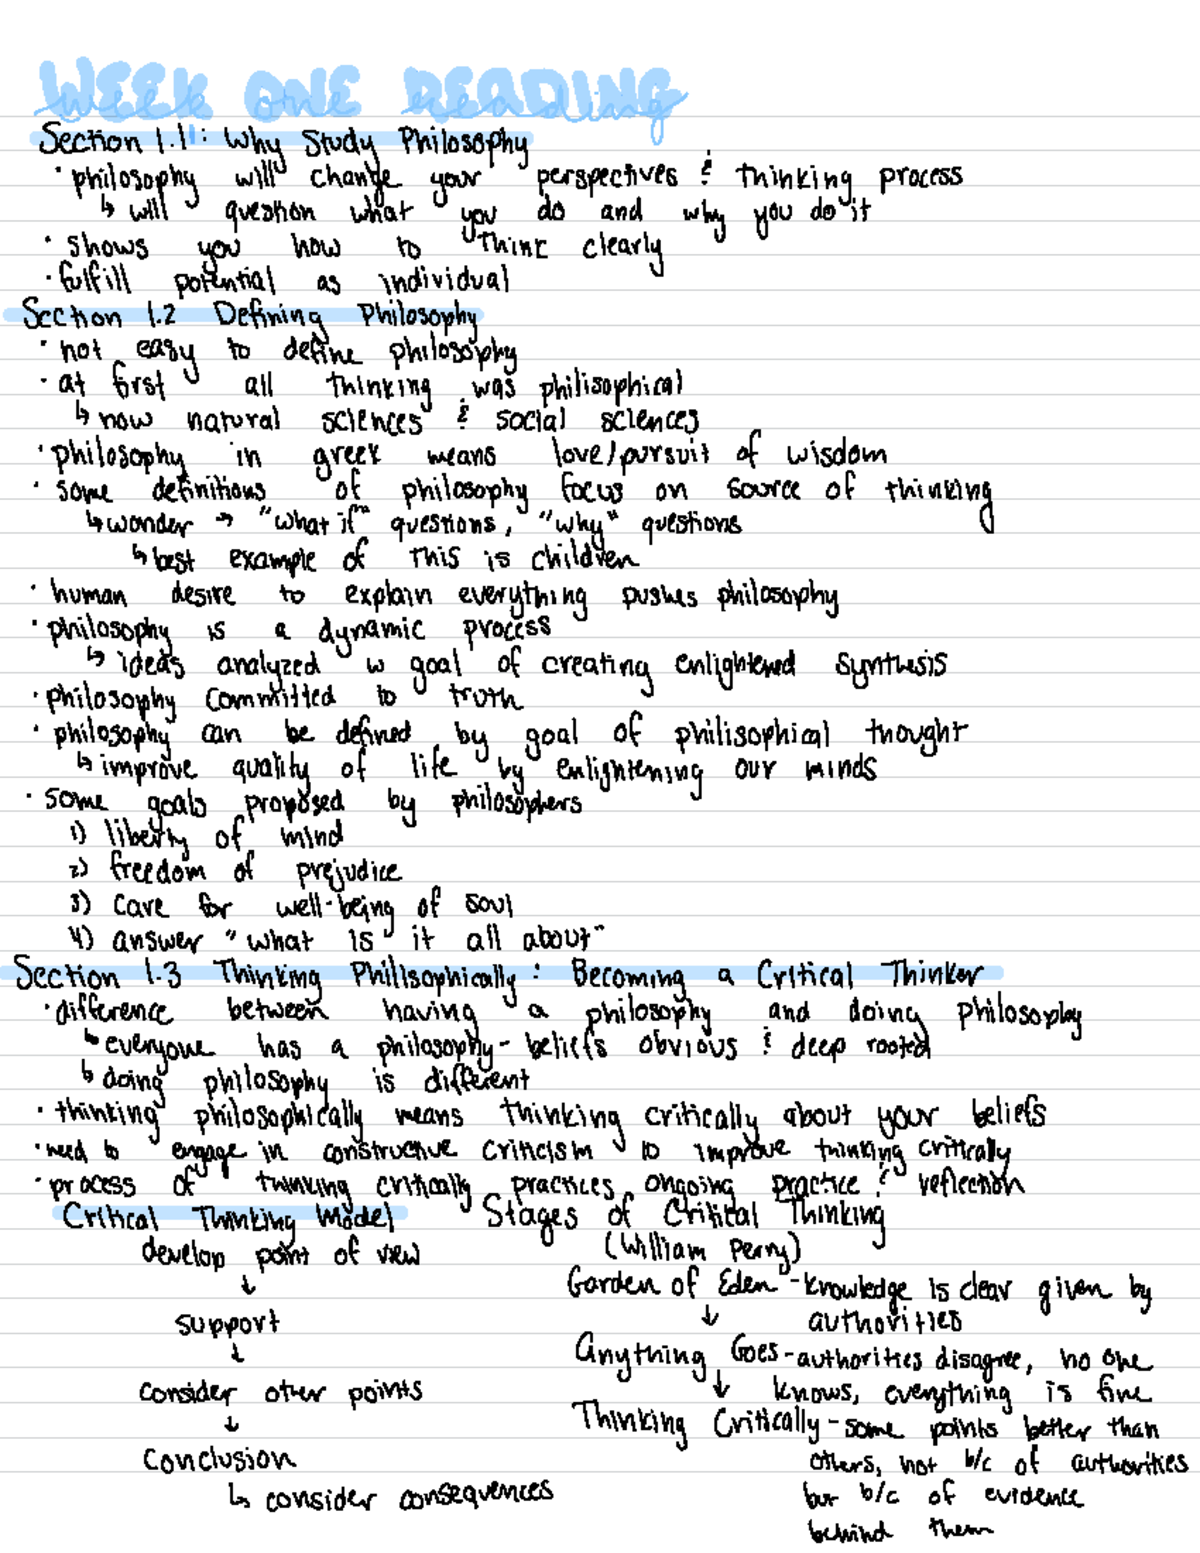 WEEK ONE READING
week one reading
Section 1.1: Why Study Philosophy
· philosophy will change your perspectives & thinking process
↳ will question what you do and why you do it
· shows you how to think clearly
· fulfill potential as individual
Section 1.2 Defining Philosophy
· not easy to define philosophy
· at first all thinking was philisophical
↳ now natural sciences & social sciences
· philosophy in greek means love/pursuit of wisdom
· some definitions of philosophy focus on source of thinking
↳ wonder → "what if" questions, "why" questions
↳ best example of this is children
· human desire to explain everything pushes philosophy
· philosophy is a dynamic process
↳ ideas analyzed w goal of creating enlightened synthesis
· philosophy committed to truth
· philosophy can be defined by goal of philisophical thought
↳ improve quality of life by enlightening our minds
· some goals proposed by philosophers
1) liberty of mind
2) freedom of prejudice
3) care for well-being of soul
4) answer "what is it all about"
Section 1.3 Thinking Philisophically: Becoming a Critical Thinker
· difference between having a philosophy and doing philosophy
↳ everyone has a philosophy - beliefs obvious & deep rooted
↳ doing philosophy is different
· thinking philosophically means thinking critically about your beliefs
· need to engage in constructive criticism to improve thinking critically
· process of thinking critically practices ongoing practice & reflection
Critical Thinking Model
develop point of view
↓
support
↓
consider other points
↓
conclusion
↳ consider consequences
Stages of Critical Thinking
(William Perry)
Garden of Eden - knowledge is clear given by
authorities
↓
Anything Goes - authorities disagree, no one
knows, everything is fine
↓
Thinking Critically - some points better than
others, not b/c of authorities
but b/c of evidence
behind them